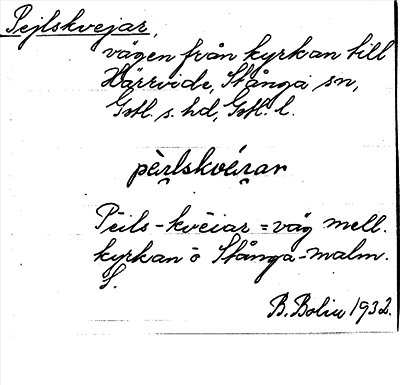 Pejlskvejar,
vägen från kyrkan till
Härrvide, Stånga sn,
Gotl. s. hd, Gotl. l.
pèrlskvérar
Pēils-kvēiar = väg mell.
kyrkan o Stånga-malm.
S.
B. Bolin 1932.